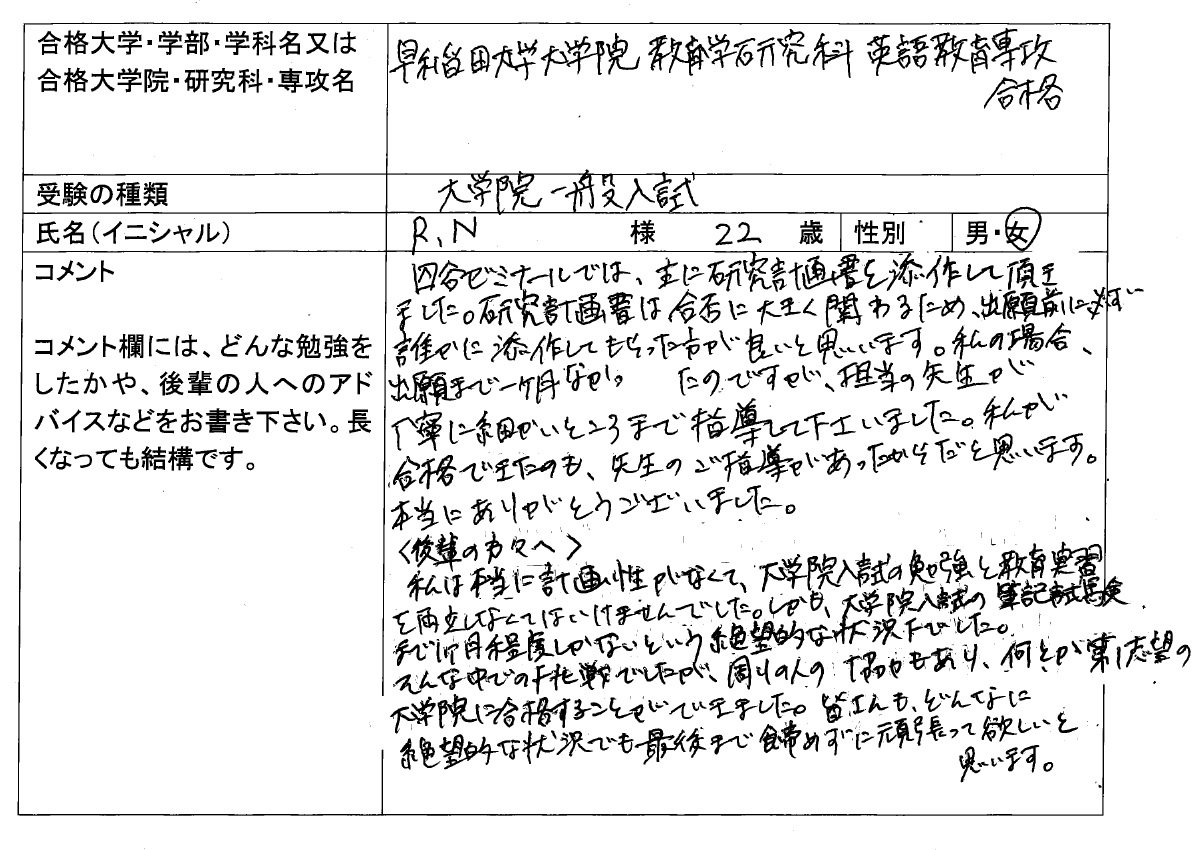 合格大学・学部・学科名又は
合格大学院・研究科・専攻名
早稲田大学大学院 教育学研究科 英語教育専攻
合格
受験の種類
大学院一般入試
氏名(イニシャル)
R,N 様 22 歳 性別 男・女
コメント
コメント欄には、どんな勉強を
したかや、後輩の人へのアド
バイスなどをお書き下さい。長
くなっても結構です。
四谷ゼミナールでは、主に研究計画書を添作して頂き
ました。研究計画書は合否に大きく関わるため、出願前に必ず
誰かに添作してもらった方が良いと思います。私の場合、
出願まで一ヶ月なかっ たのですが、担当の先生が
丁寧に細かいところまで指導して下さいました。私が
合格できたのも、先生のご指導があったからだと思います。
本当にありがとうございました。
〈後輩の方々へ〉
私は本当に計画性がなくて、大学院入試の勉強と教育実習
を両立しなくてはいけませんでした。しかも、大学院入試の筆記試験
まで1ヶ月程度しかないという絶望的な状況下でした。
そんな中での挑戦でしたが、周りの人の協力もあり、何とか第1志望の
大学院に合格することができました。皆さんも、どんなに
絶望的な状況でも最後まで諦めずに頑張って欲しいと
思います。